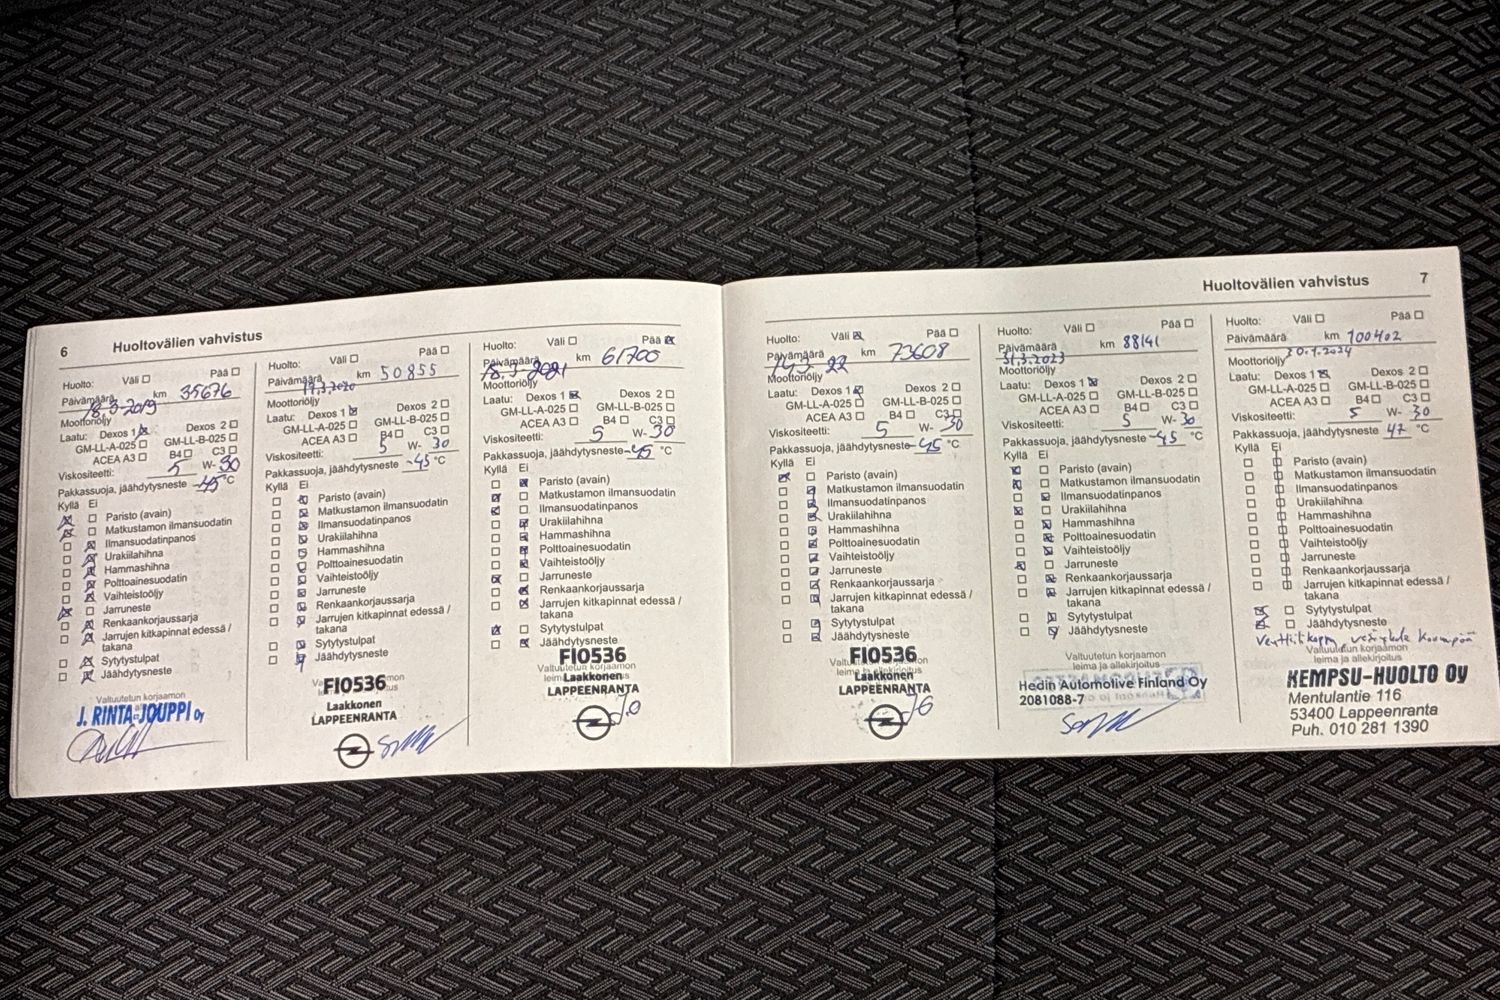 6
Huoltovälien vahvistus
Huolto: Väli ☐ Pää ☐
Päivämäärä 18.3.2019 km 35676
Moottoriöljy
Laatu: Dexos 1 ☒ Dexos 2 ☐
GM-LL-A-025 ☐ GM-LL-B-025 ☐
ACEA A3 ☐ B4 ☐ C3 ☐
Viskositeetti: 5 W- 30
Pakkassuoja, jäähdytysneste -45 °C
Kyllä Ei
☒ ☐ Paristo (avain)
☒ ☐ Matkustamon ilmansuodatin
☐ ☒ Ilmansuodatinpanos
☐ ☒ Urakiilahihna
☐ ☒ Hammashihna
☐ ☒ Polttoainesuodatin
☐ ☒ Vaihteistoöljy
☒ ☐ Jarruneste
☐ ☒ Renkaankorjaussarja
☐ ☒ Jarrujen kitkapinnat edessä /
takana
☐ ☒ Sytytystulpat
☐ ☒ Jäähdytysneste
Valtuutetun korjaamon
J. RINTA-JOUPPI oy
Huolto: Väli ☐ Pää ☐
Päivämäärä 17.3.2020 km 50855
Moottoriöljy
Laatu: Dexos 1 ☒ Dexos 2 ☐
GM-LL-A-025 ☐ GM-LL-B-025 ☐
ACEA A3 ☐ B4 ☐ C3 ☐
Viskositeetti: 5 W- 30
Pakkassuoja, jäähdytysneste -45 °C
Kyllä Ei
☐ ☒ Paristo (avain)
☐ ☒ Matkustamon ilmansuodatin
☐ ☒ Ilmansuodatinpanos
☐ ☒ Urakiilahihna
☐ ☒ Hammashihna
☐ ☒ Polttoainesuodatin
☐ ☒ Vaihteistoöljy
☐ ☒ Jarruneste
☐ ☒ Renkaankorjaussarja
☐ ☒ Jarrujen kitkapinnat edessä /
takana
☐ ☒ Sytytystulpat
☐ ☒ Jäähdytysneste
FI0536
Laakkonen
LAPPEENRANTA
Huolto: Väli ☐ Pää ☒
Päivämäärä 18.3.2021 km 61700
Moottoriöljy
Laatu: Dexos 1 ☒ Dexos 2 ☐
GM-LL-A-025 ☐ GM-LL-B-025 ☐
ACEA A3 ☐ B4 ☐ C3 ☐
Viskositeetti: 5 W- 30
Pakkassuoja, jäähdytysneste -45 °C
Kyllä Ei
☐ ☒ Paristo (avain)
☒ ☐ Matkustamon ilmansuodatin
☒ ☐ Ilmansuodatinpanos
☐ ☒ Urakiilahihna
☐ ☒ Hammashihna
☐ ☒ Polttoainesuodatin
☐ ☒ Vaihteistoöljy
☒ ☐ Jarruneste
☐ ☒ Renkaankorjaussarja
☐ ☒ Jarrujen kitkapinnat edessä /
takana
☒ ☐ Sytytystulpat
☐ ☒ Jäähdytysneste
FI0536
Valtuutetun korjaamon
Laakkonen
LAPPEENRANTA
J.O
Huoltovälien vahvistus
7
Huolto: Väli ☒ Pää ☐
Päivämäärä 14.3.22 km 73608
Moottoriöljy
Laatu: Dexos 1 ☒ Dexos 2 ☐
GM-LL-A-025 ☐ GM-LL-B-025 ☐
ACEA A3 ☐ B4 ☐ C3 ☐
Viskositeetti: 5 W- 30
Pakkassuoja, jäähdytysneste -45 °C
Kyllä Ei
☒ ☐ Paristo (avain)
☐ ☒ Matkustamon ilmansuodatin
☐ ☒ Ilmansuodatinpanos
☐ ☒ Urakiilahihna
☐ ☒ Hammashihna
☐ ☒ Polttoainesuodatin
☐ ☒ Vaihteistoöljy
☐ ☒ Jarruneste
☐ ☒ Renkaankorjaussarja
☐ ☒ Jarrujen kitkapinnat edessä /
takana
☐ ☒ Sytytystulpat
☐ ☒ Jäähdytysneste
FI0536
Laakkonen
LAPPEENRANTA
Huolto: Väli ☐ Pää ☐
Päivämäärä 31.3.2023 km 88141
Moottoriöljy
Laatu: Dexos 1 ☒ Dexos 2 ☐
GM-LL-A-025 ☐ GM-LL-B-025 ☐
ACEA A3 ☐ B4 ☐ C3 ☐
Viskositeetti: 5 W- 30
Pakkassuoja, jäähdytysneste -45 °C
Kyllä Ei
☒ ☐ Paristo (avain)
☒ ☐ Matkustamon ilmansuodatin
☐ ☒ Ilmansuodatinpanos
☒ ☐ Urakiilahihna
☐ ☒ Hammashihna
☐ ☒ Polttoainesuodatin
☐ ☒ Vaihteistoöljy
☒ ☐ Jarruneste
☐ ☒ Renkaankorjaussarja
☐ ☒ Jarrujen kitkapinnat edessä /
takana
☐ ☒ Sytytystulpat
☐ ☒ Jäähdytysneste
Valtuutetun korjaamon
leima ja allekirjoitus
Hedin Automotive Finland Oy
2081088-7
Huolto: Väli ☐ Pää ☐
Päivämäärä km 100402
Moottoriöljy
Laatu: Dexos 1 ☒ Dexos 2 ☐
GM-LL-A-025 ☐ GM-LL-B-025 ☐
ACEA A3 ☐ B4 ☐ C3 ☐
Viskositeetti: 5 W- 30
Pakkassuoja, jäähdytysneste 47 °C
Kyllä Ei
☐ ☒ Paristo (avain)
☐ ☒ Matkustamon ilmansuodatin
☐ ☒ Ilmansuodatinpanos
☐ ☒ Urakiilahihna
☐ ☒ Hammashihna
☐ ☒ Polttoainesuodatin
☐ ☒ Vaihteistoöljy
☐ ☒ Jarruneste
☐ ☒ Renkaankorjaussarja
☐ ☒ Jarrujen kitkapinnat edessä /
takana
☒ ☐ Sytytystulpat
☒ ☐ Jäähdytysneste
Valtuutetun korjaamon
leima ja allekirjoitus
KEMPSU-HUOLTO Oy
Mentulantie 116
53400 Lappeenranta
Puh. 010 281 1390